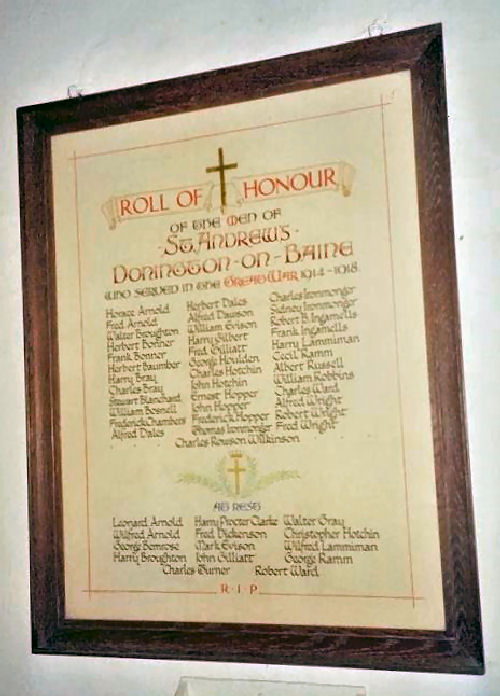 ROLL OF HONOUR
OF THE MEN OF
· ST. ANDREW'S ·
DONINGTON-ON-BAINE
WHO SERVED IN THE GREAT WAR 1914-1918.
Horace Arnold Herbert Dales Charles Ironmonger
Fred Arnold Alfred Dawson Sidney Ironmonger
Walter Broughton William Evison Robert B. Ingamells
Herbert Bonner Harry Gilbert Frank Ingamells
Frank Bonner Fred Gilliatt Harry Lammiman
Herbert Baumber George Houlden Cecil Ramm
Harry Bray Charles Hotchin Albert Russell
Charles Bray John Hotchin William Robbins
Stewart Blanchard Ernest Hopper Charles Ward
William Bosnell John Hopper Alfred Wright
Frederick Chambers Frederick Hopper Robert Wright
Alfred Dales Thomas Ironmonger Fred Wright
Charles Rowson Wilkinson
AT REST
Leonard Arnold Harry Procter Clarke Walter Gray
Wilfred Arnold Fred Dickenson Christopher Hotchin
George Bemrose Mark Evison Wilfred Lammiman
Harry Broughton John Gilliatt George Ramm
Charles Turner Robert Ward
R · I · P